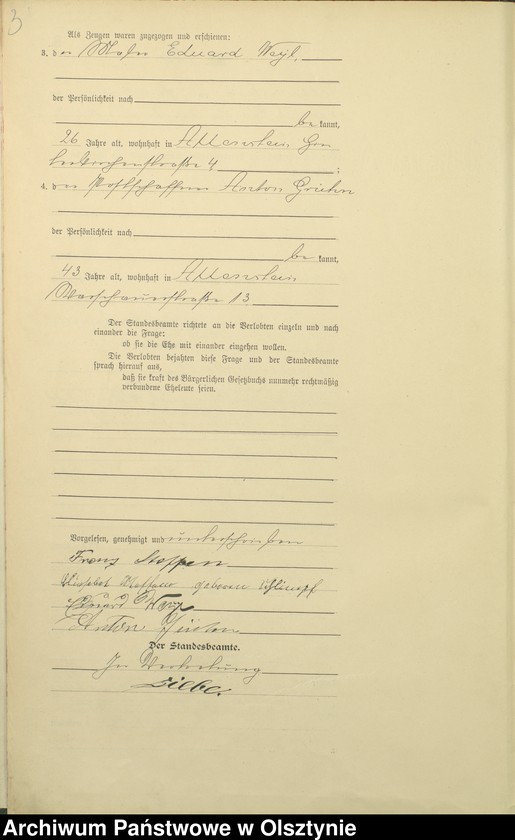 3
Als Zeugen waren zugezogen und erschienen:
3. der Maler Eduard Weyl
der Persönlichkeit nach
be kannt,
26 Jahre alt, wohnhaft in Allenstein
straße 4 ;
4. der Postschaffner Anton
der Persönlichkeit nach
be kannt,
43 Jahre alt, wohnhaft in Allenstein
Warschauerstraße 13
Der Standesbeamte richtete an die Verlobten einzeln und nach
einander die Frage:
ob sie die Ehe mit einander eingehen wollen.
Die Verlobten bejahten diese Frage und der Standesbeamte
sprach hierauf aus,
daß sie kraft des Bürgerlichen Gesetzbuchs nunmehr rechtmäßig
verbundene Eheleute seien.
Vorgelesen, genehmigt und unterschrieben
Franz
geborene
Eduard Weyl
Anton
Der Standesbeamte.
In Vertretung
Archiwum Państwowe w Olsztynie